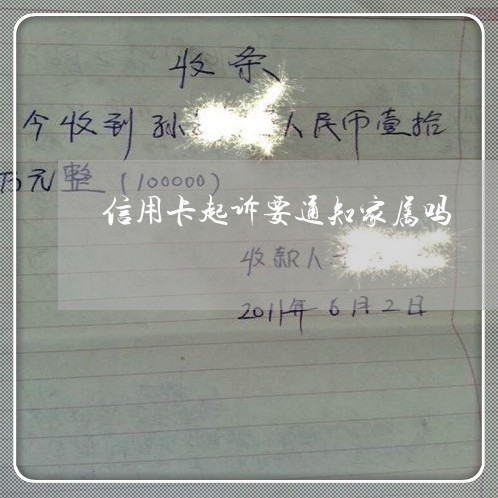 收条
今收到孙 人民币壹拾
万元整（100000）
信用卡起诉要通知家属吗
收款人
2011年6月2日